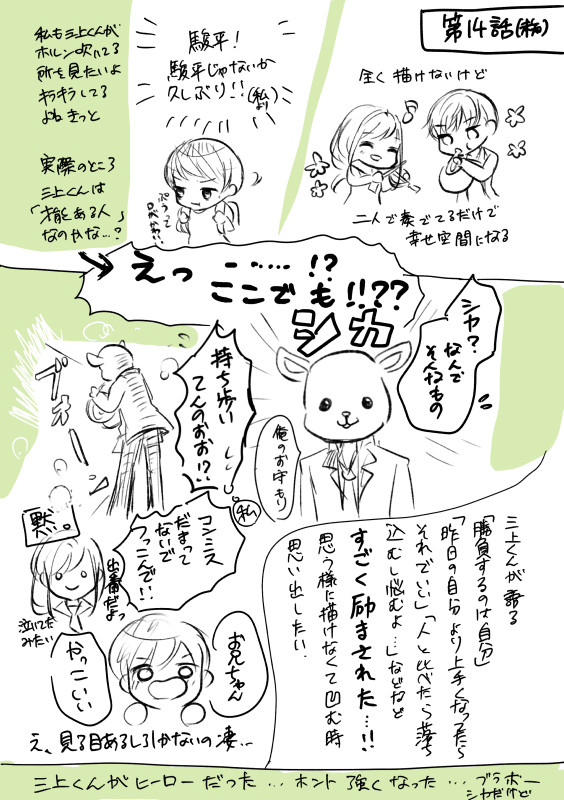 第14話(私的)
全く描けないけど
二人で奏でてるだけで
幸せ空間になる
駿平!
駿平じゃないか
久しぶり!!(私より)
ぷうって
口がかわいい
私も三上くんが
ホルン吹いてる
所を見たいよ
キラキラしてる
よね きっと
実際のところ
三上くんは
「才能ある人」
なのかな…?
えっ……!?
ここでも!!??
シカ
シカ?
なんで
そんなもの
俺のお守り
持ち歩い
てんのおお!?
私
ブオー
コンミス
だまって
ないで
つっこんで!!
出番だよっ
黙。
泣いてた
みたい
お兄ちゃん
かっこいい
え、見る目あるし引かないの凄…
三上くんが語る
「勝負するのは自分」
「昨日の自分より上手くなったら
それでいい」「人と比べたら落ち
込むし悩むよ…」などなど
すごく励まされた…!!
思う様に描けなくて凹む時
思い出したい.
三上くんがヒーローだった… ホント強くなった… ブラボー
シカだけど